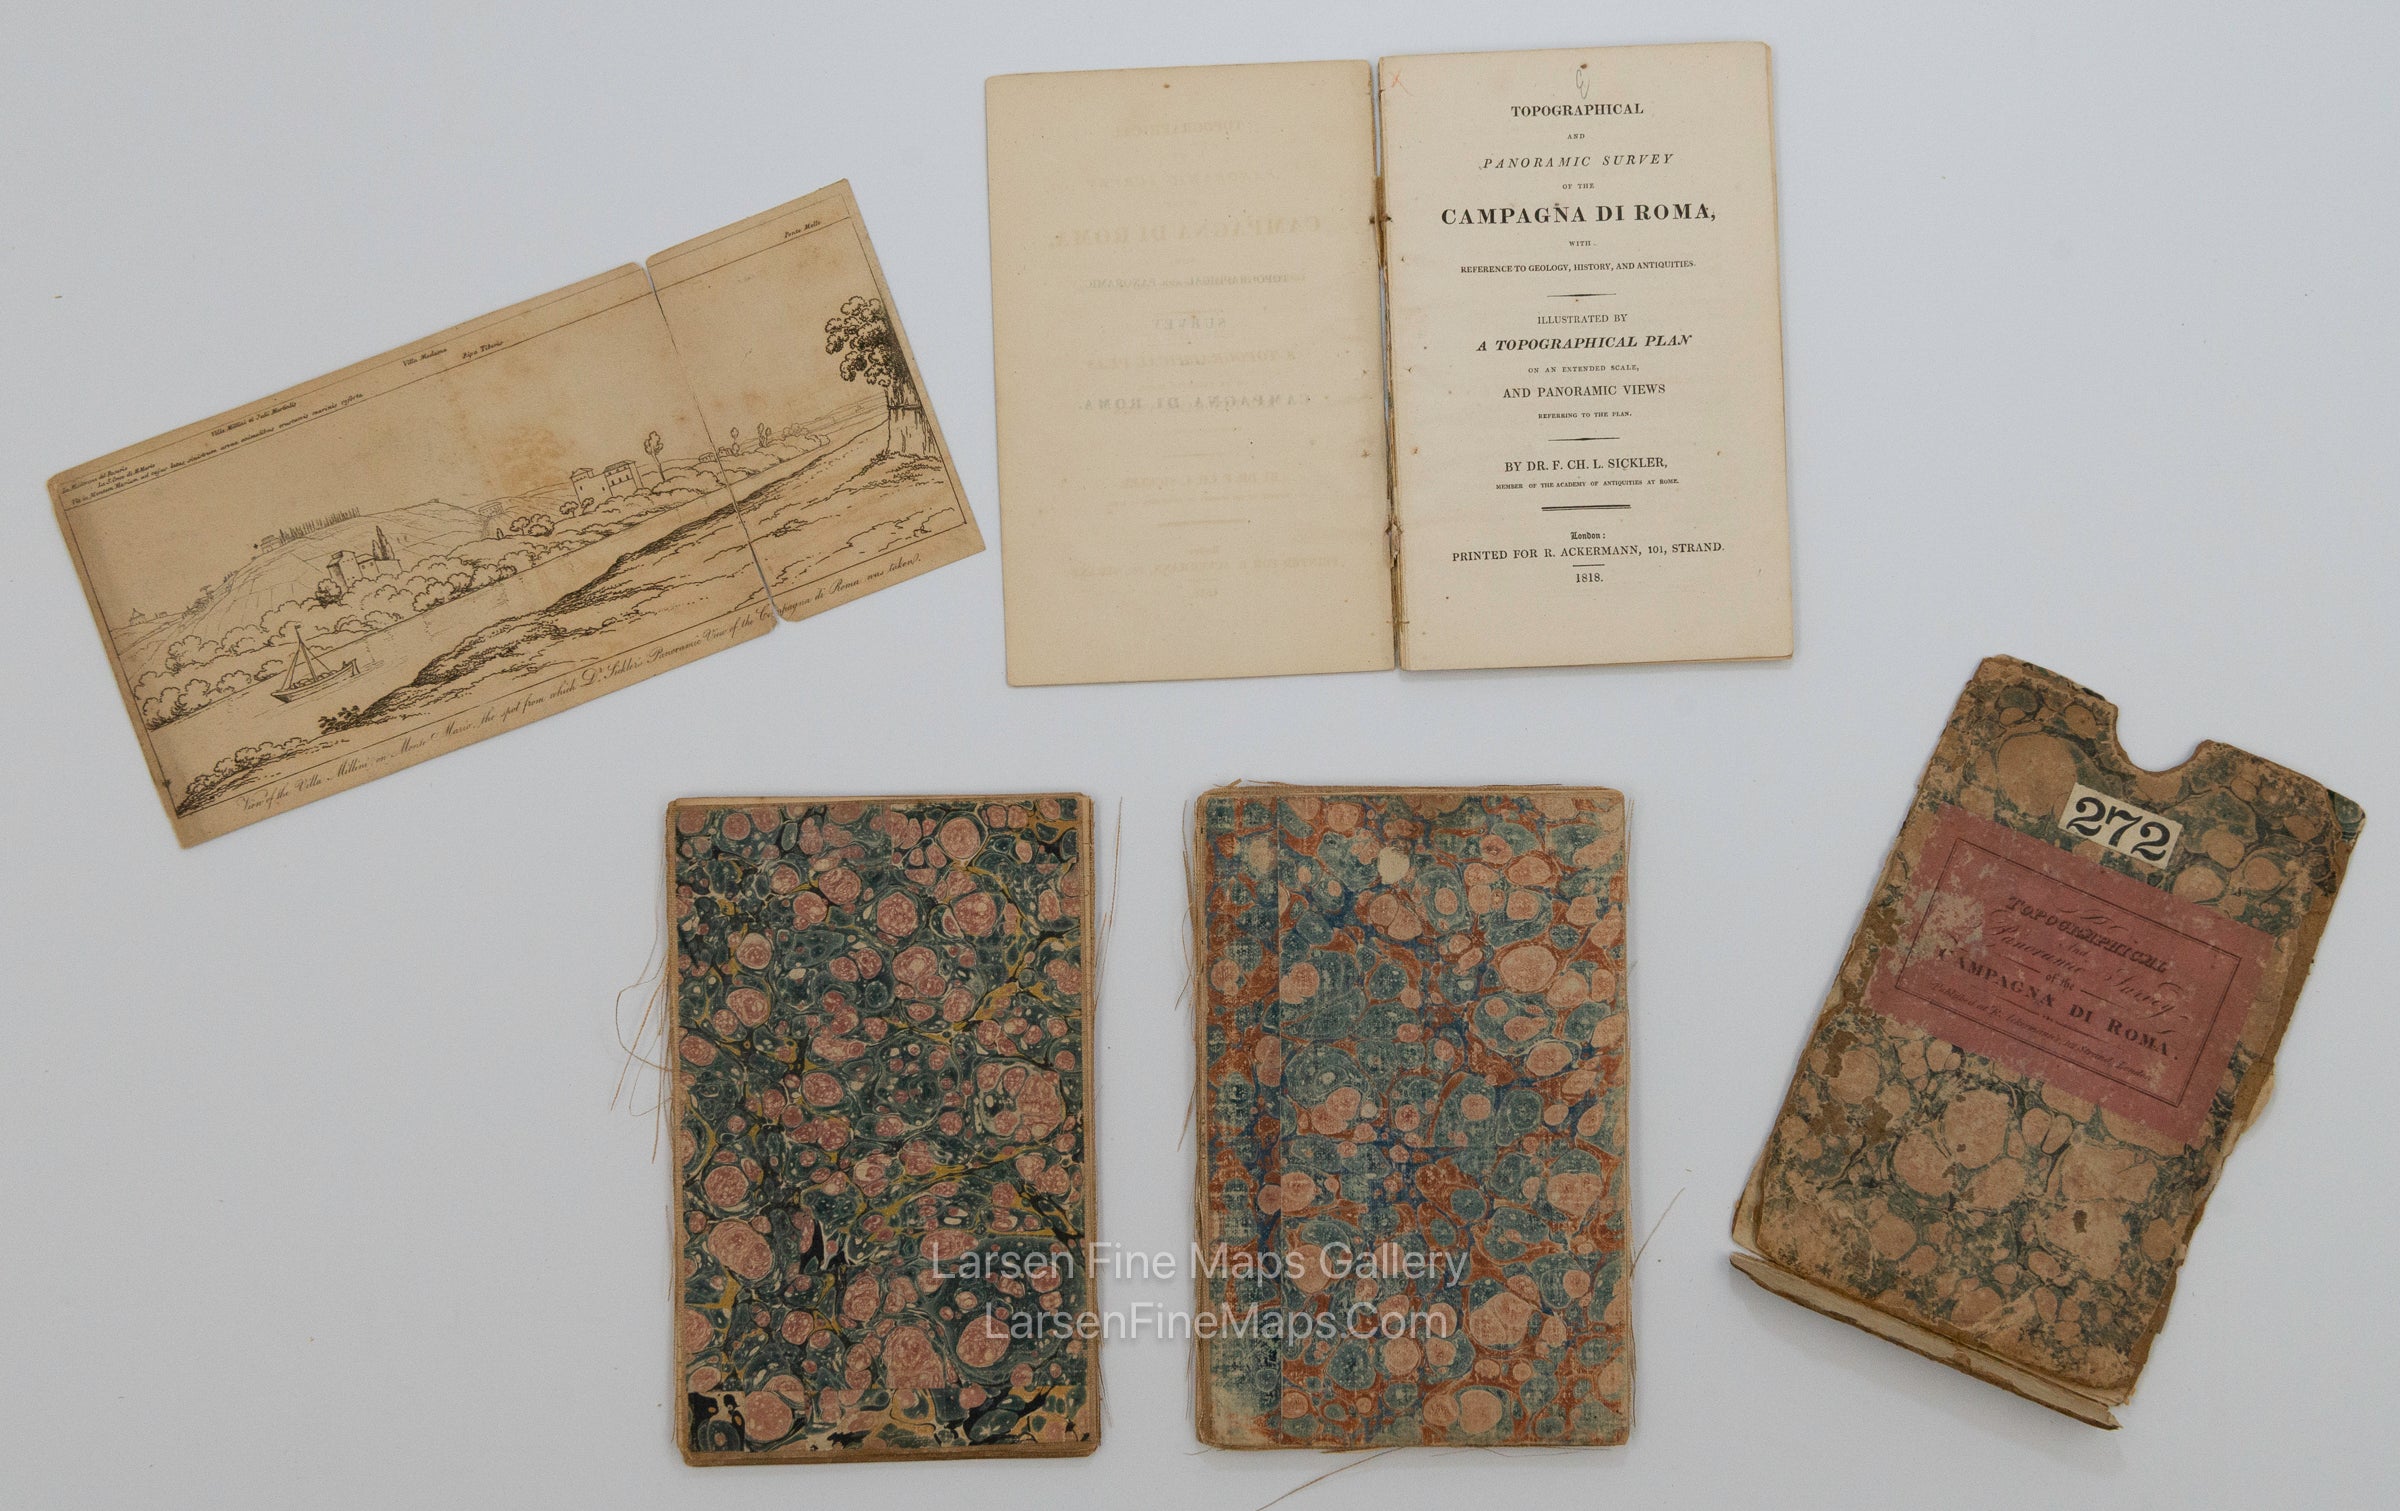 TOPOGRAPHICAL
AND
PANORAMIC SURVEY
OF THE
CAMPAGNA DI ROMA,
WITH
REFERENCE TO GEOLOGY, HISTORY, AND ANTIQUITIES.
ILLUSTRATED BY
A TOPOGRAPHICAL PLAN
ON AN EXTENDED SCALE,
AND PANORAMIC VIEWS
REFERRING TO THE PLAN.
BY DR. F. CH. L. SICKLER,
MEMBER OF THE ACADEMY OF ANTIQUITIES AT ROME.
London:
PRINTED FOR R. ACKERMANN, 101, STRAND.
1818.
Ponte Molle
Villa Madama
Ripa Tiberis
Villa Millini
View of the Villa Millini on Monte Mario, the spot from which Dr. Sickler's Panoramic View of the Campagna di Roma was taken.
272
TOPOGRAPHICAL
And
Panoramic Survey
of the
CAMPAGNA DI ROMA.
Published at R. Ackermann's, 101 Strand, London.
Larsen Fine Maps Gallery
LarsenFineMaps.Com